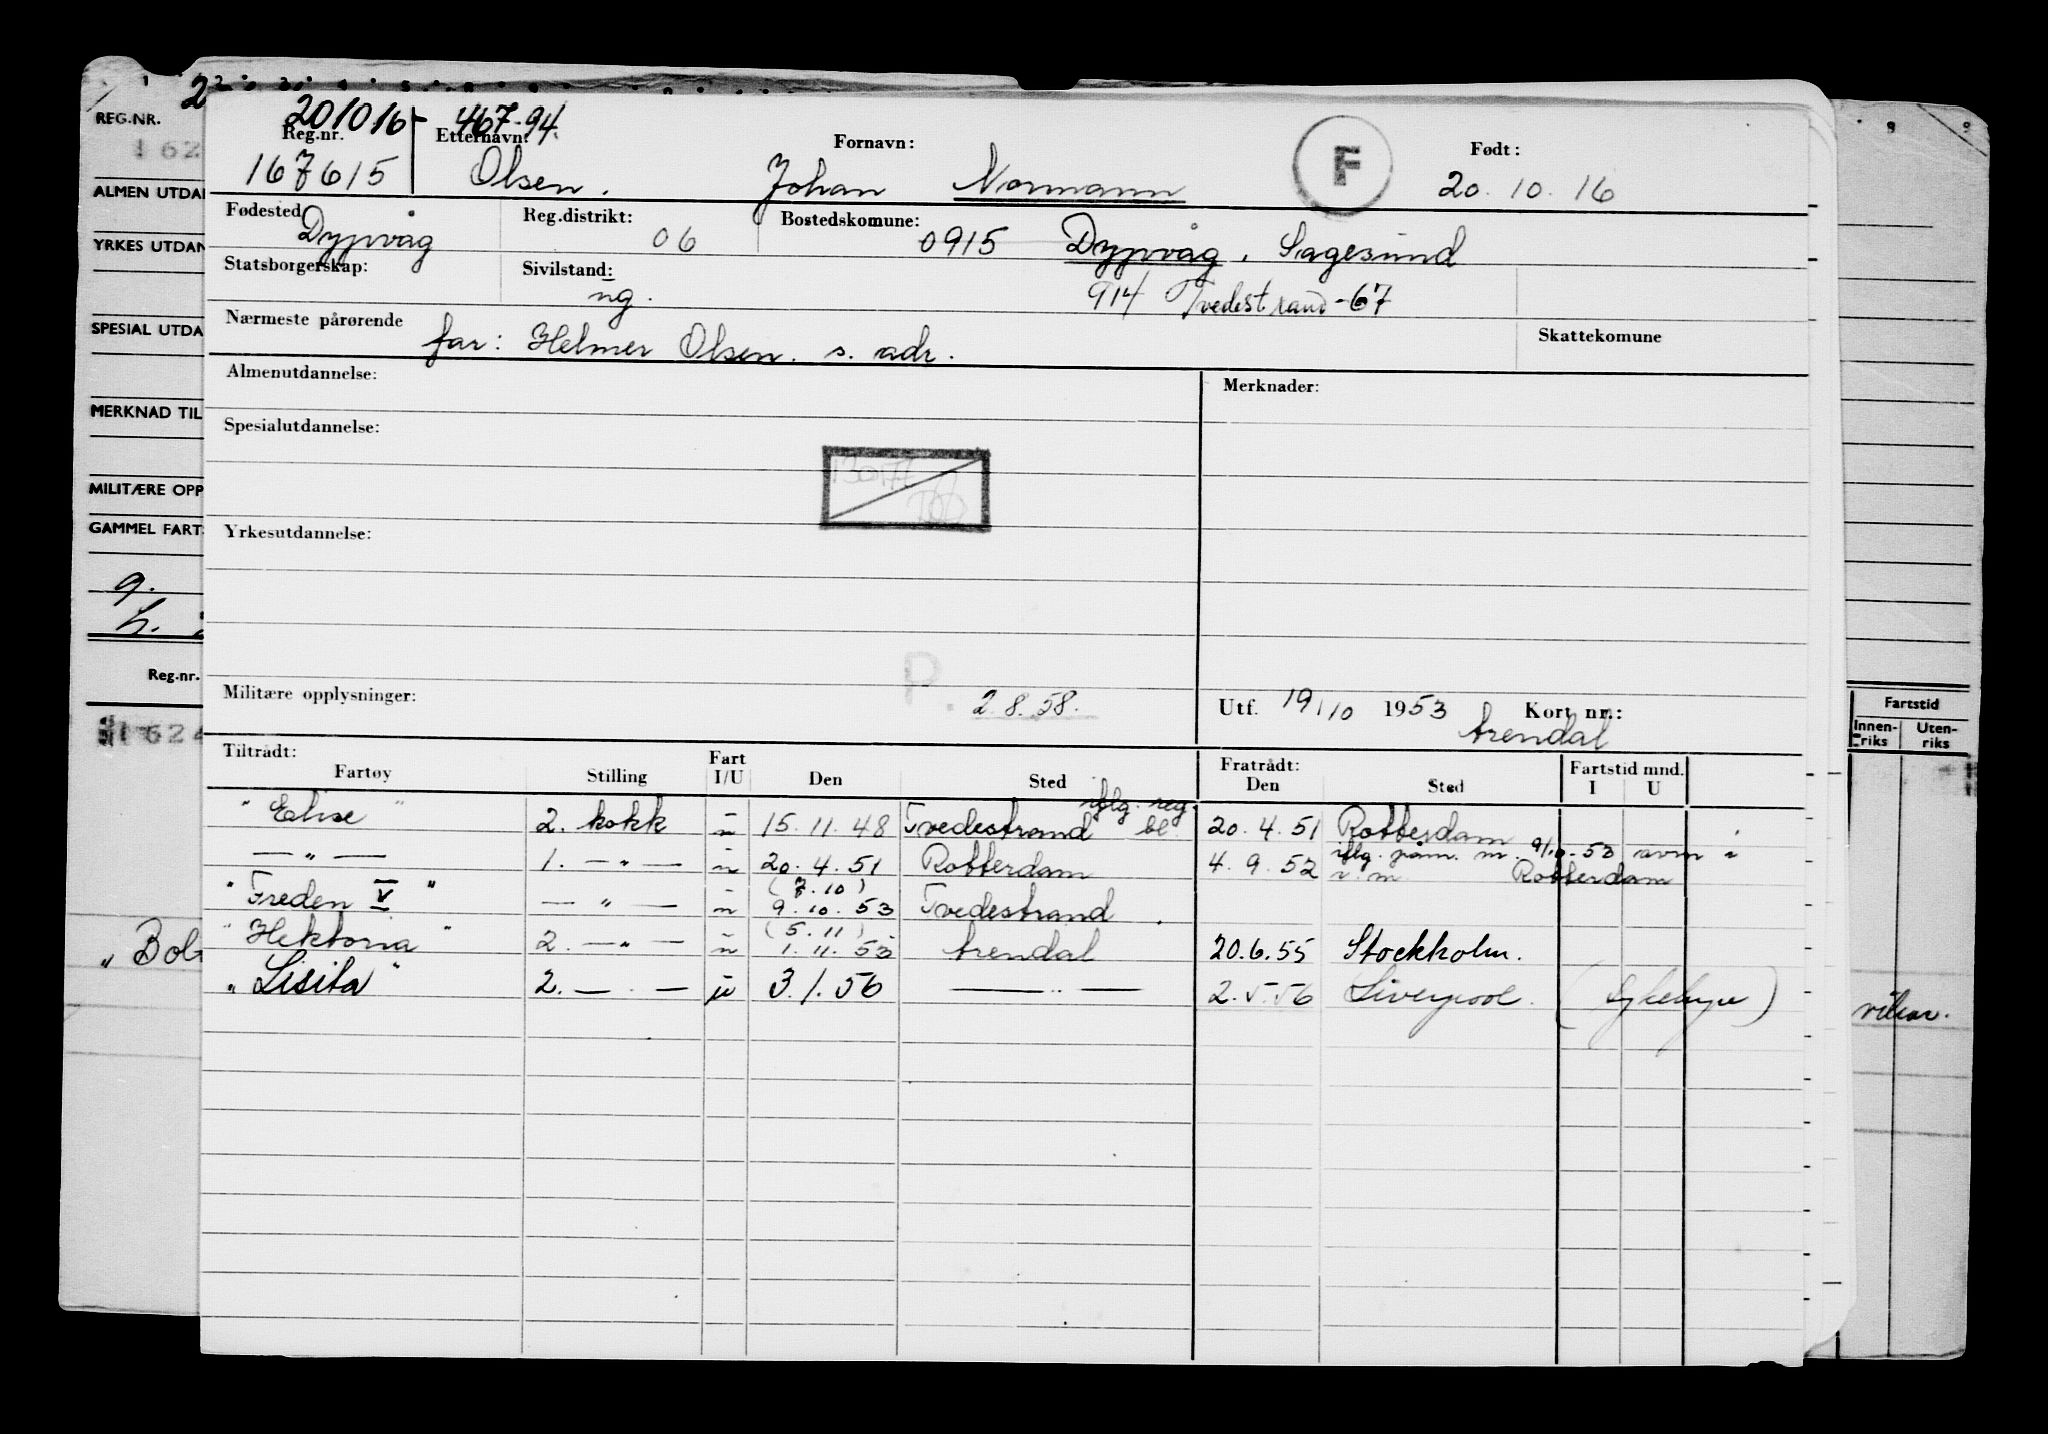 201016 - 467-94.
REG.NR. Reg.nr. Etternavn: Fornavn: F Født:
167615 Olsen. Johan Normann 20.10.16
ALMEN UTDAN
Fødested Reg.distrikt: Bostedskomune:
Dypvåg 06 0915 Dypvåg, Sagesund
YRKES UTDAN
Statsborgerskap: Sivilstand:
ug. 914 Tvedestrand -67
Nærmeste pårørende Skattekomune
SPESIAL UTDA
far: Helmer Olsen. s. adr.
Almenutdannelse: Merknader:
MERKNAD TIL
Spesialutdannelse:
MILITÆRE OPP
GAMMEL FARTS
Yrkesutdannelse:
Reg.nr.
P.
Militære opplysninger: 2.8.58. Utf. 19/10 1953 Kort nr.:
Arendal
Fartstid
Innen-riks Uten-riks
1624
Tiltrådt: Fratrådt: Fartstid mnd.
Fartøy Stilling Fart I/U Den Sted Den Sted I U
"Elise" 2. kokk u 15.11.48 Tvedestrand iflg. reg. bl. 20.4.51 Rotterdam
— " — 1. — " — u 20.4.51 Rotterdam 4.9.52 iflg. påm. m. 9/10-53 avm i Rotterdam
"Freden V" — " — u (7.10) 9.10.53 Tvedestrand.
"Hektoria" 2. — " — u (5.11) 1.11.53 Arendal 20.6.55 Stockholm.
"Lisita" 2. — " — u 3.1.56 — " — 2.5.56 Liverpool. (Sykehus)